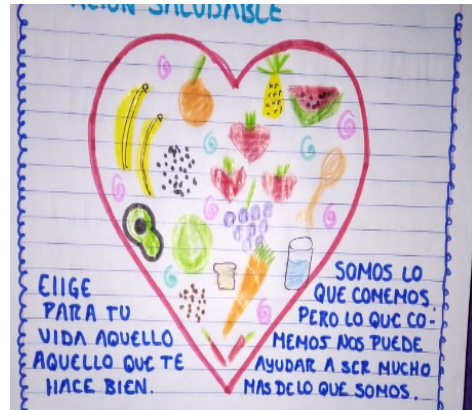 ACIÓN SALUDABLE
EIIGE
PARA TU
VIDA AQUELLO
AQUELLO QUE TE
HACE BIEN.
SOMOS LO
QUE COMEMOS.
PERO LO QUE CO-
MEMOS NOS PUEDE
AYUDAR A SER MUCHO
MAS DE LO QUE SOMOS.